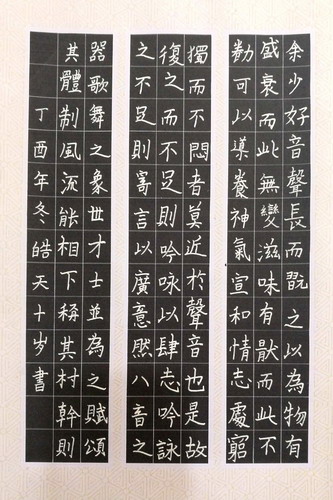 余少好音聲長而翫之以為物有
盛衰而此無變滋味有猒而此不
勌可以導養神氣宣和情志處窮
獨而不悶者莫近於聲音也是故
復之而不足則吟咏以肆志吟詠
之不足則寄言以廣意然八音之
器歌舞之象世才士並為之賦頌
其體制風流能相下稱其村幹則
丁酉年冬皓天十岁書